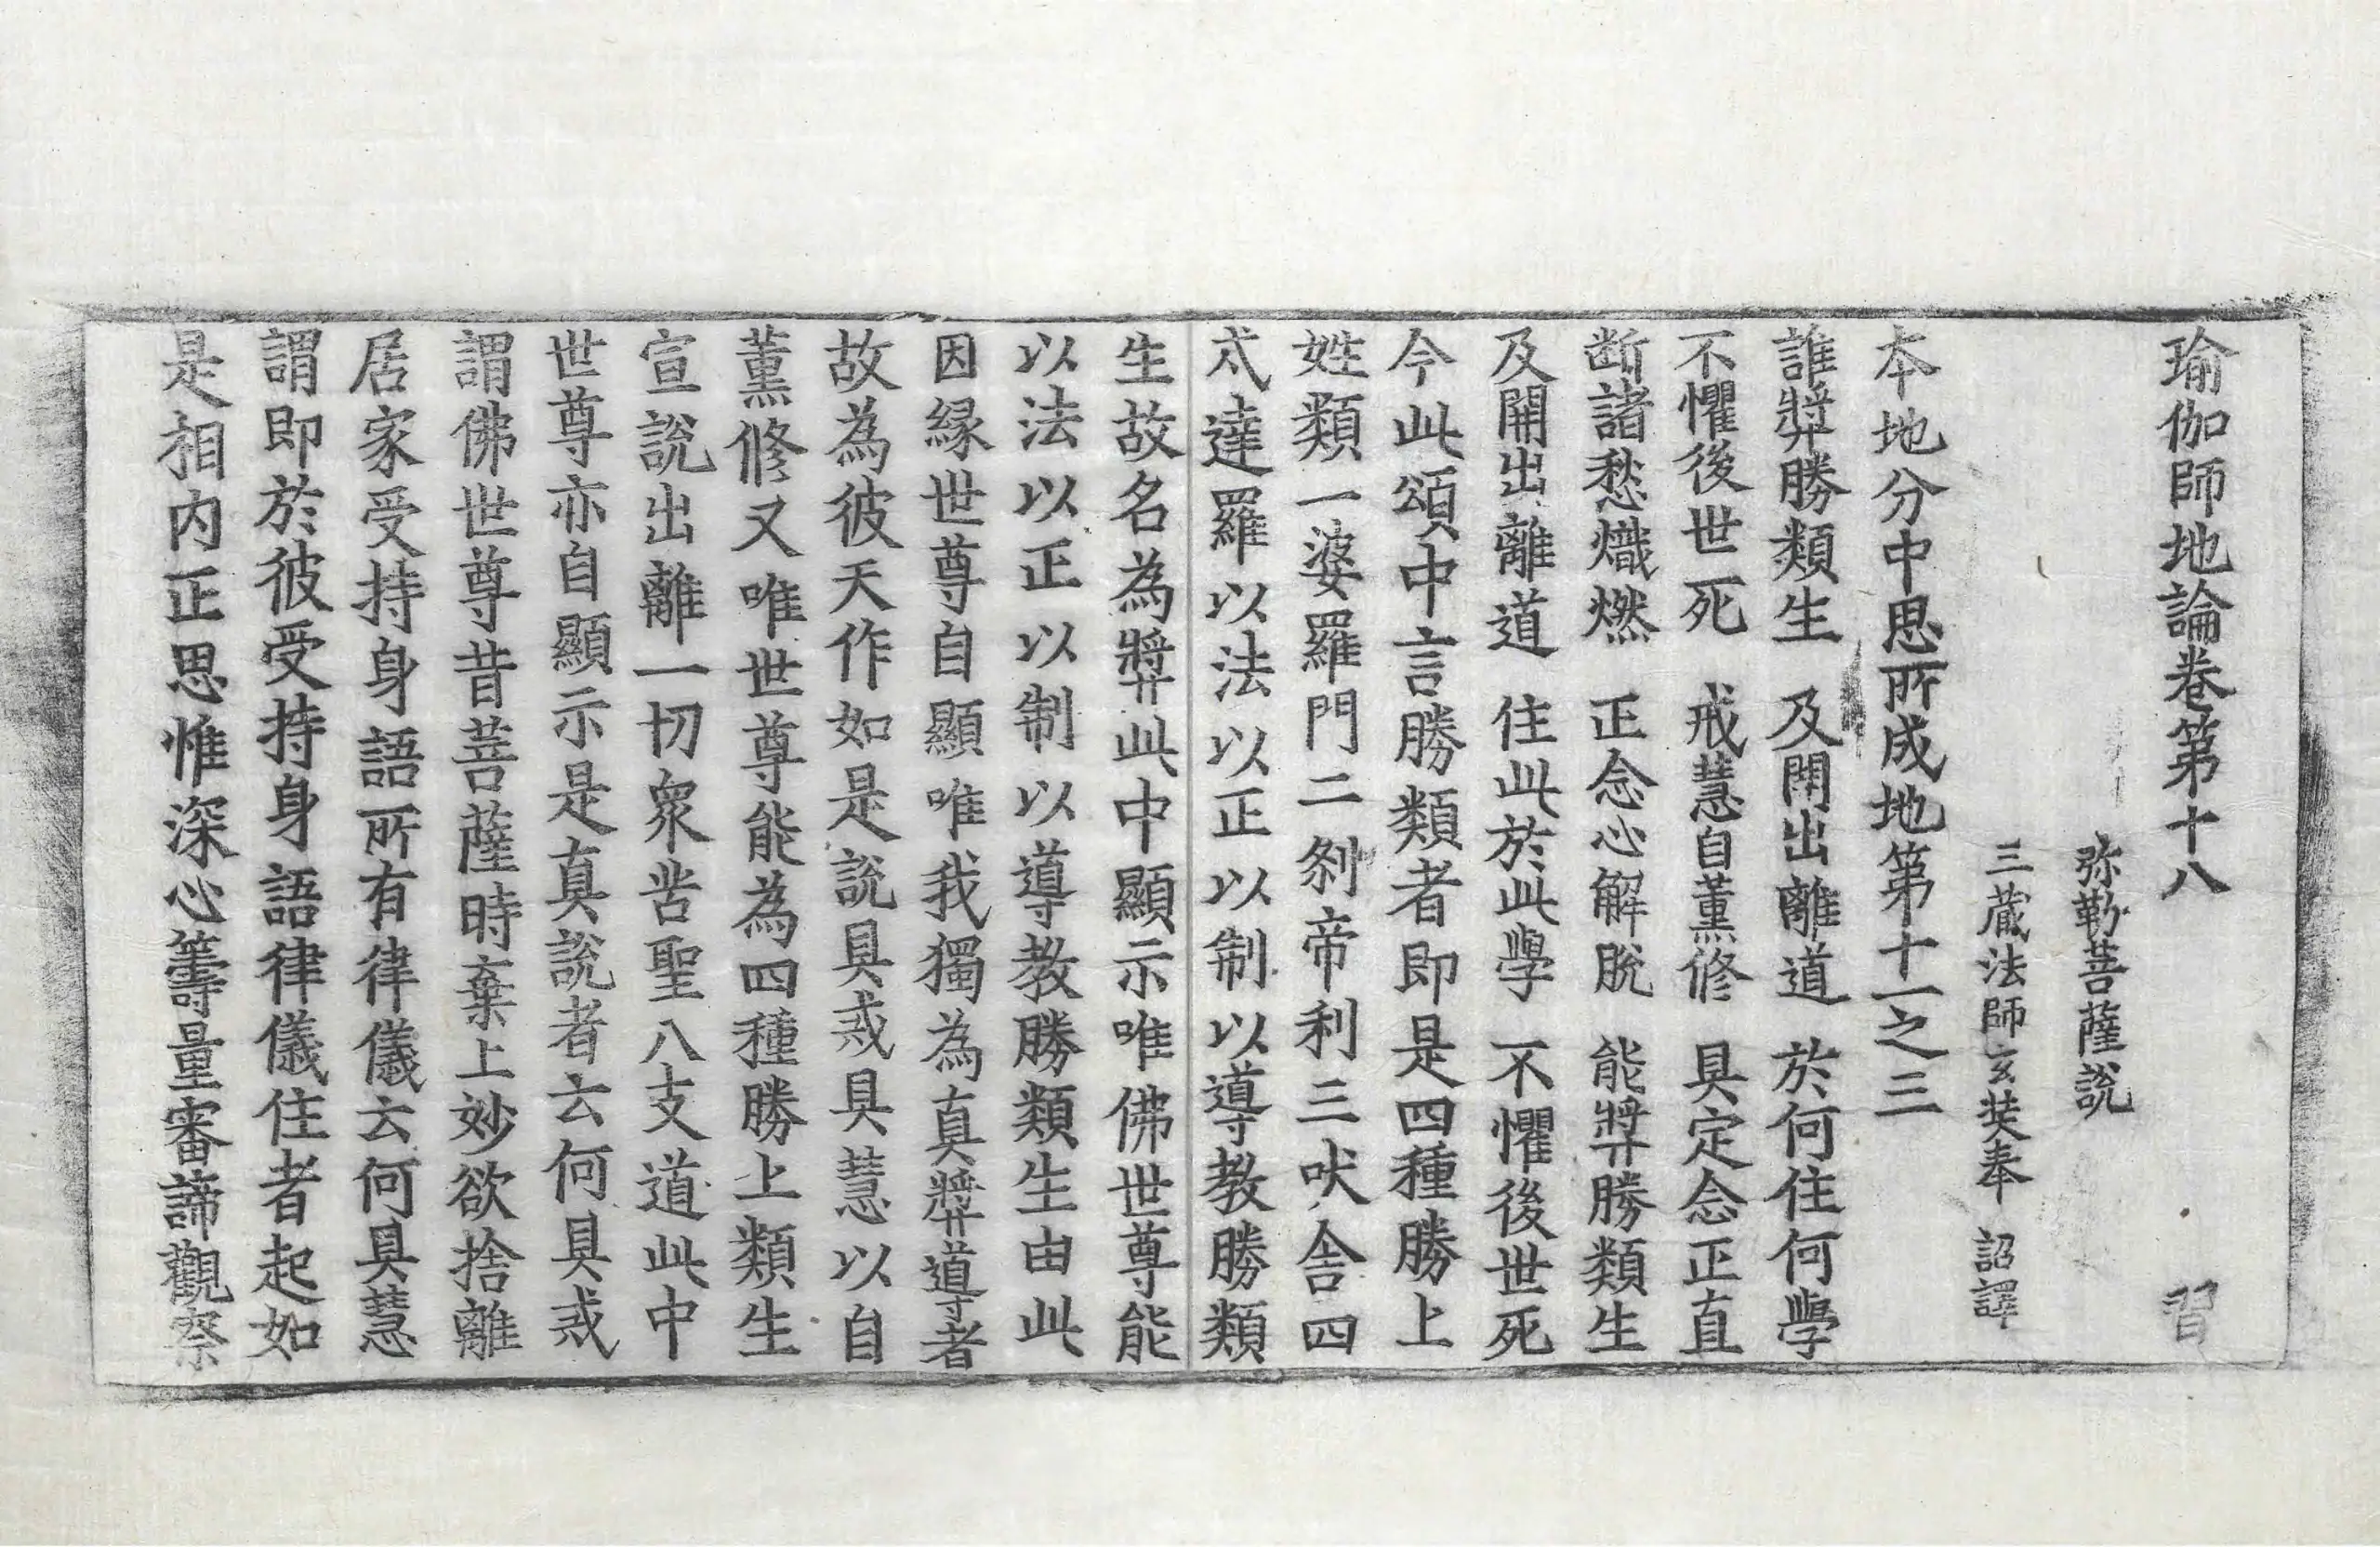 瑜伽師地論卷第十八　習
弥勒菩薩說
三蔵法師玄奘奉　詔譯
本地分中思所成地第十一之三
誰奬勝類生　及開出離道　於何住何學
不懼後世死　戒慧自薫修　具定念正直
断諸愁熾燃　正念心解脫　能奬勝類生
及開出離道　住此於此學　不懼後世死
今此頌中言勝類者即是四種勝上
姓類一婆羅門二刹帝利三吠舎四
戍達羅以法以正以制以導教勝類
生故名為奬此中顯示唯佛世尊能
以法以正以制以導教勝類生由此
因縁世尊自顯唯我獨為真奬導者
故為彼天作如是説具戒具慧以自
薫修又唯世尊能為四種勝上類生
宣說出離一切衆苦聖八支道此中
世尊亦自顯示是真說者云何具戒
謂佛世尊昔菩薩時棄上妙欲捨離
居家受持身語所有律儀云何具慧
謂即於彼受持身語律儀住者起如
是相内正思惟深心籌量審諦觀察